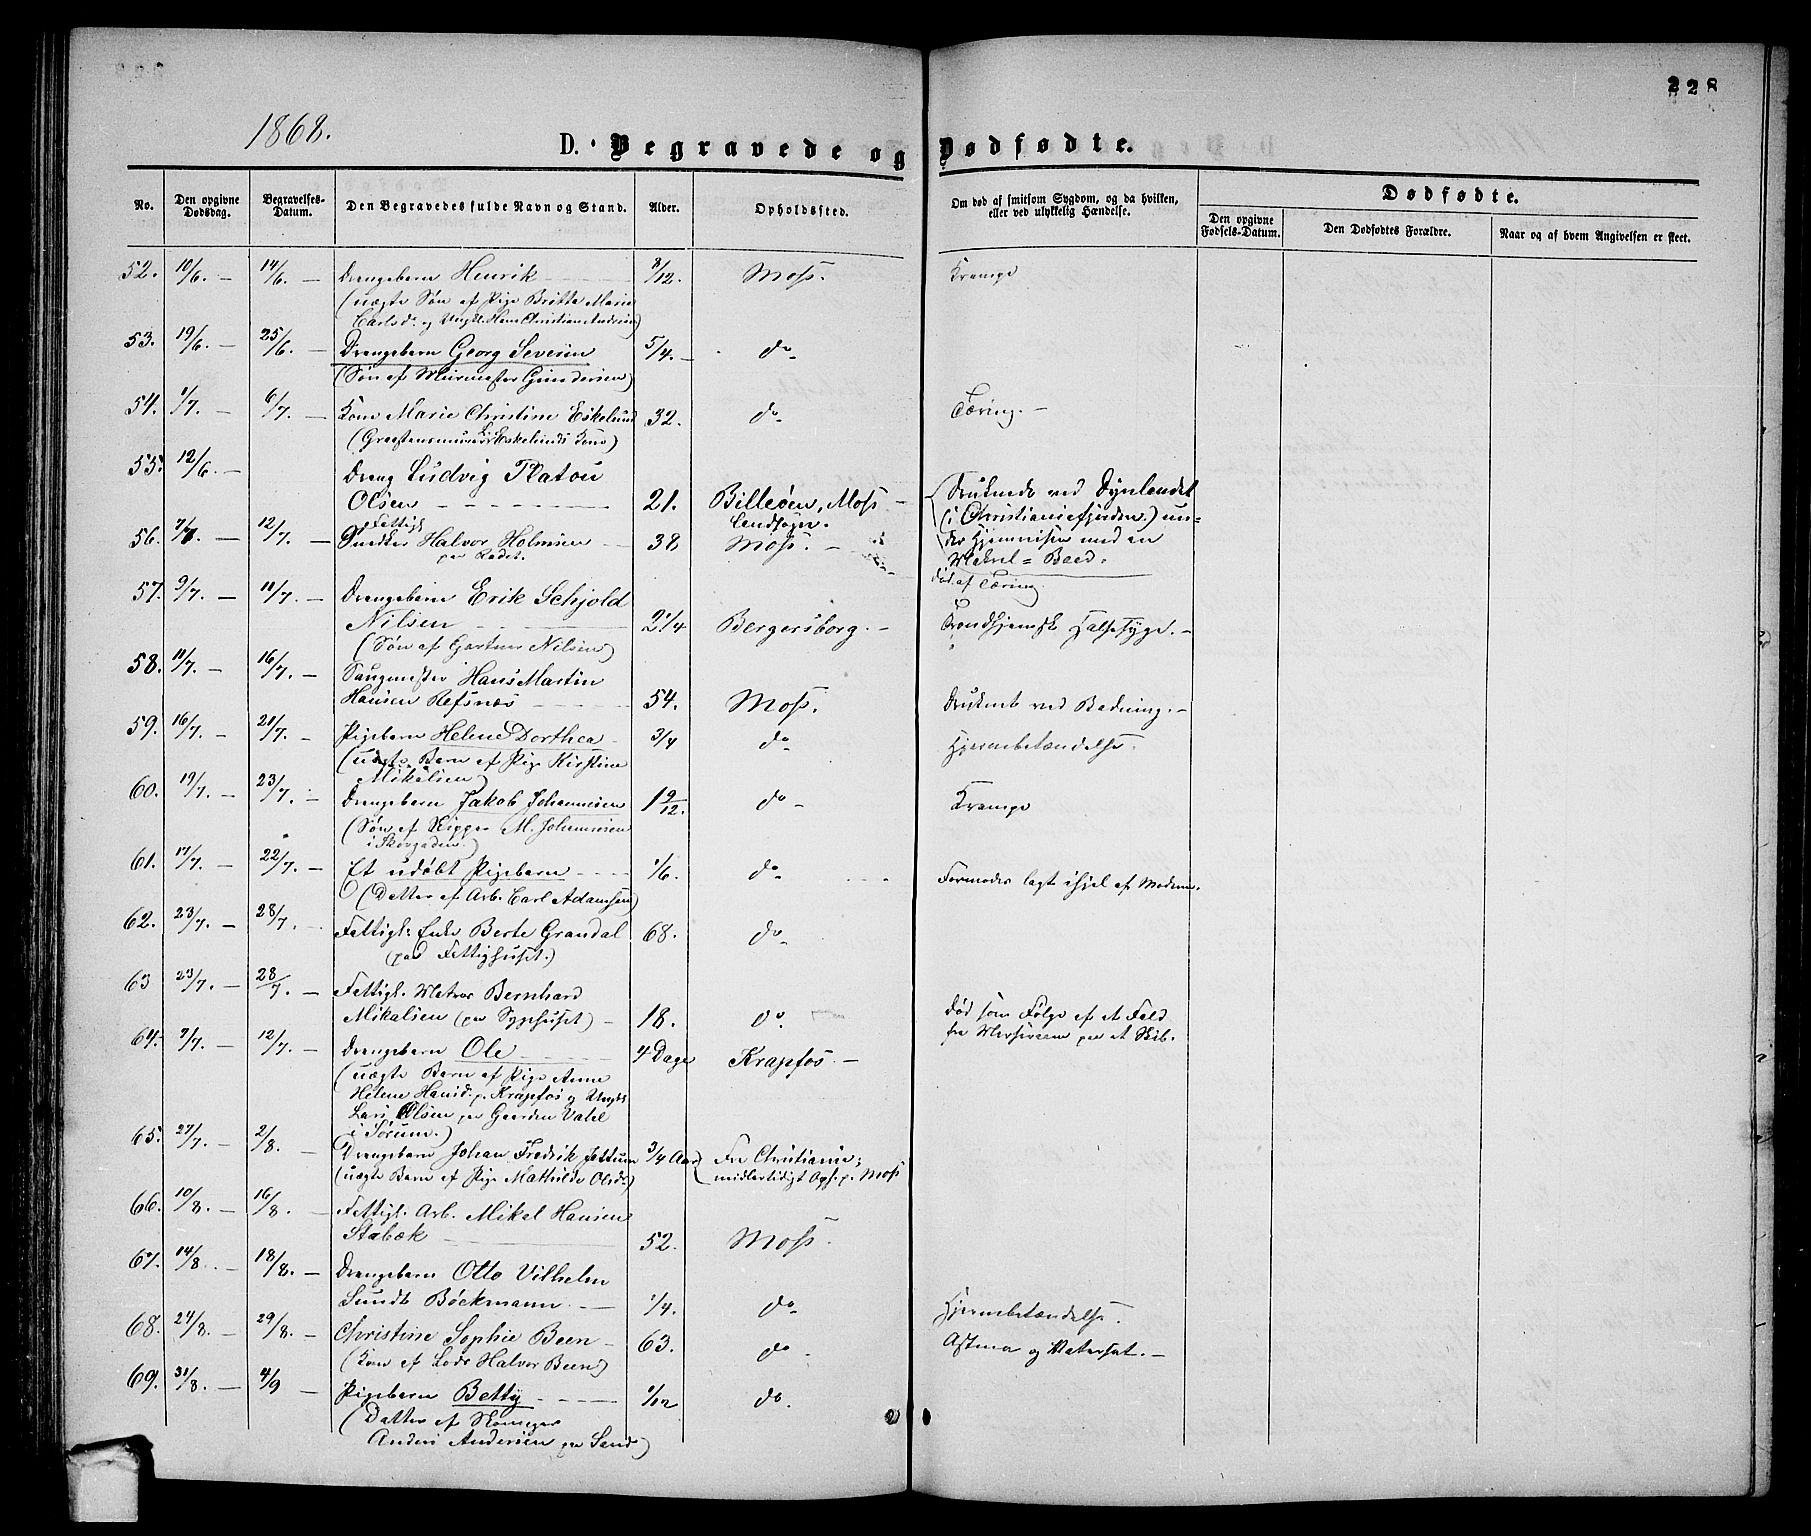 228
1868.
D. Begravede og Dødfødte.
No.
Den opgivne Dødsdag.
Begravelses-Datum.
Den Begravedes fulde Navn og Stand.
Alder.
Opholdssted.
Om død af smitsom Sygdom, og da hvilken, eller ved ulykkelig Hændelse.
Dødfødte.
Den opgivne Fødsels-Datum.
Den Dødfødtes Forældre.
Naar og af hvem Angivelsen er skeet.
52. 10/6. — 14/6. — Drengebarn Henrik 8/12. Moss. Krampe
(uægte Søn af Pige Britta Marie
Carlsd. og Ungk. Hans Christian Andersen)
53. 19/6. — 25/6. — Drengebarn Georg Severin 5/4. — do
(Søn af Murmester Gundersen)
54. 1/7. — 6/7. — Kone Marie Christine Eskelund 32. do Tæring. —
(Graastensmurer Eskelunds Kone)
55. 12/6. — Dreng Ludvig Platou
Olsen 21. Billeøen, Moss Landsogn. Druknede ved Dynlandet
(i Christianiafjorden) un-
der Hjemreisen med en
Makrel-Baad.
56. 7/7. — 12/7. — Fattigl. Snedker Halvor Holmsen 38, Moss. — død af Tæring
paa Radet.
57. 9/7. — 11/7. — Drengebarn Erik Schjold
Nilsen 2 1/4 Bergersborg. — Trondhjemsk Halssyge. —
(Søn af Gartner Nilsen)
58. 11/7. — 16/7. — Saugmester Hans Martin
Hansen Refsnæs 54. Moss. Druknet ved Badning. —
59. 16/7. — 21/7. — Pigebarn Helene Dorthea 3/4 do Hjernebetændelse.
(uægte Barn af Pige Kirstine
Mikalsen)
60. 19/7. — 23/7. — Drengebarn Jakob Johannesen 1 9/12. do — Krampe
(Søn af Skipper M. Johannesen
i Skovgaden.)
61. 17/7. — 22/7. — Et udøbt Pigebarn 1/6. do Formodes lagt ihjel af Moderen.
(Datter af Arb. Carl Adamsen)
62. 23/7. — 28/7. Fattigl. Enke Berte Grandal 68. do
(paa Fattighuset.)
63 23/7. — 28/7. — Fattigl. Matros Bernhard
Mikalsen (paa Sygehuset) — 18. do. Død som Følge af et Fald
fra Mersraaen paa et Skib.
64. 7/7. — 12/7. — Drengebarn Ole 4 Dage Krapfos —
(uægte Barn af Pige Anne
Helene Hansd. p. Krapfos og Ungk.
Lars Olsen paa Gaarden Vahl
i Sørum.)
65. 27/7. — 2/8. — Drengebarn Johan Fredrik Jettum 3/4 Aar Fra Christiania;
(uægte Barn af Pige Mathilde Olsd.) midlertidigt Oph. p. Moss
66. 10/8. — 16/8. — Fattigl. Arb. Mikal Hansen
Stabæk 52. Moss.
67. 14/8. — 18/8. — Drengebarn Otto Vilhelm
Sundt Böckmann. — 1/4. do Hjernebetændelse.
68. 24/8. — 29/8. — Christine Sophie Been 63. do. Astma og Vatersot. —
(Kone af Lods Halvor Been)
69. 31/8. — 4/9 — Pigebarn Betty 1/12 do.
(Datter af
Anders Andersen paa Sand)